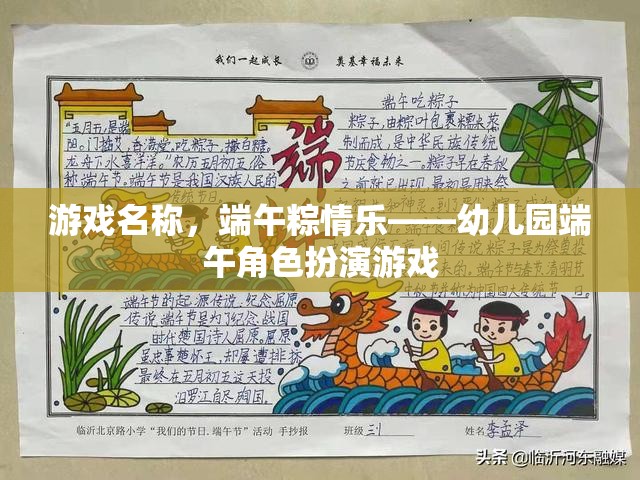 我们一起成长 奠基幸福未来
"五月五，是端
阳。门插艾，香满堂，吃粽子，撒白糖，
龙舟下水喜洋洋。"农历五月初五，俗
称端午节。端午节是我国汉族人民的
端
端午吃粽子
粽子，由粽叶包裹糯米蒸
制而成，是中华民族传统
节庆食物之一。粽子早在春秋
之前就已出现，最初是用来祭
游戏名称，端午粽情乐——幼儿园端
午角色扮演游戏
端午节的起源传说，纪念屈原
传说端午节是为了纪念战国
时代楚国诗人屈原。屈原
吴忠事楚怀王，却屡遭排挤
最终在五月初五这天投
汨罗江自尽殉国。
临沂北京路小学"我们的节日.端午节"活动 手抄报 班级 三1 姓名 李孟泽
头条 @临沂河东融媒